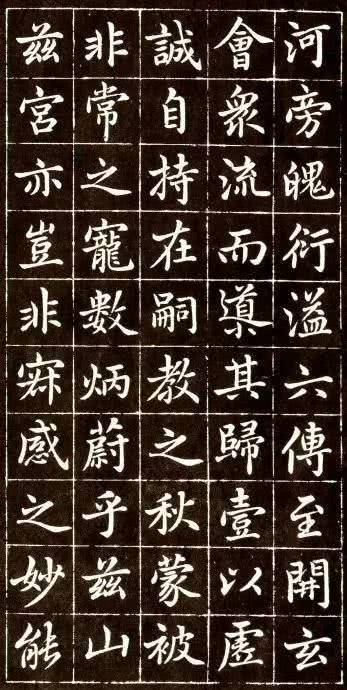 河旁魄衍溢六傳至開玄
會衆流而導其歸壹以虛
誠自持在嗣教之秋蒙被
非常之寵數炳蔚乎茲山
茲宮亦豈非寂感之妙能